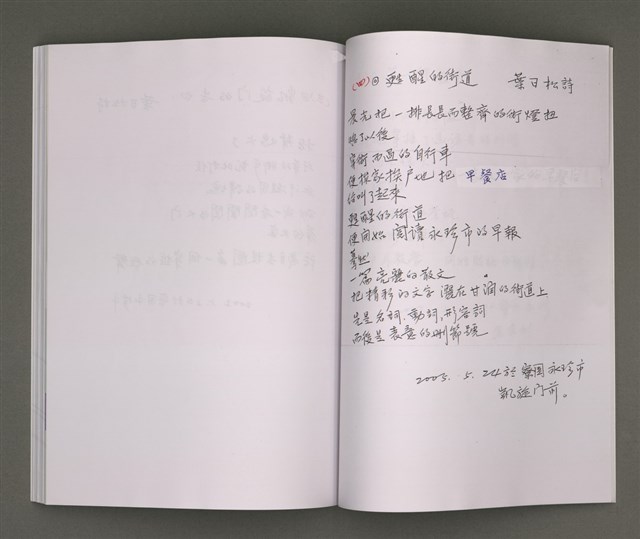 (四) 甦醒的街道 葉日松詩
晨光把一排長長而整齊的街燈担
熄了以後
穿街而過的自行車
便挨家挨户地把 早餐店
給叫了起來
甦醒的街道
便開始閱讀永珍市的早報
驀然
一篇亮麗的散文
把精彩的文字灑在甘潤的街道上
先是名詞、動詞、形容詞
而後是表意的刪節號
2005. 5. 24 於寮國永珍市
凱旋門前。